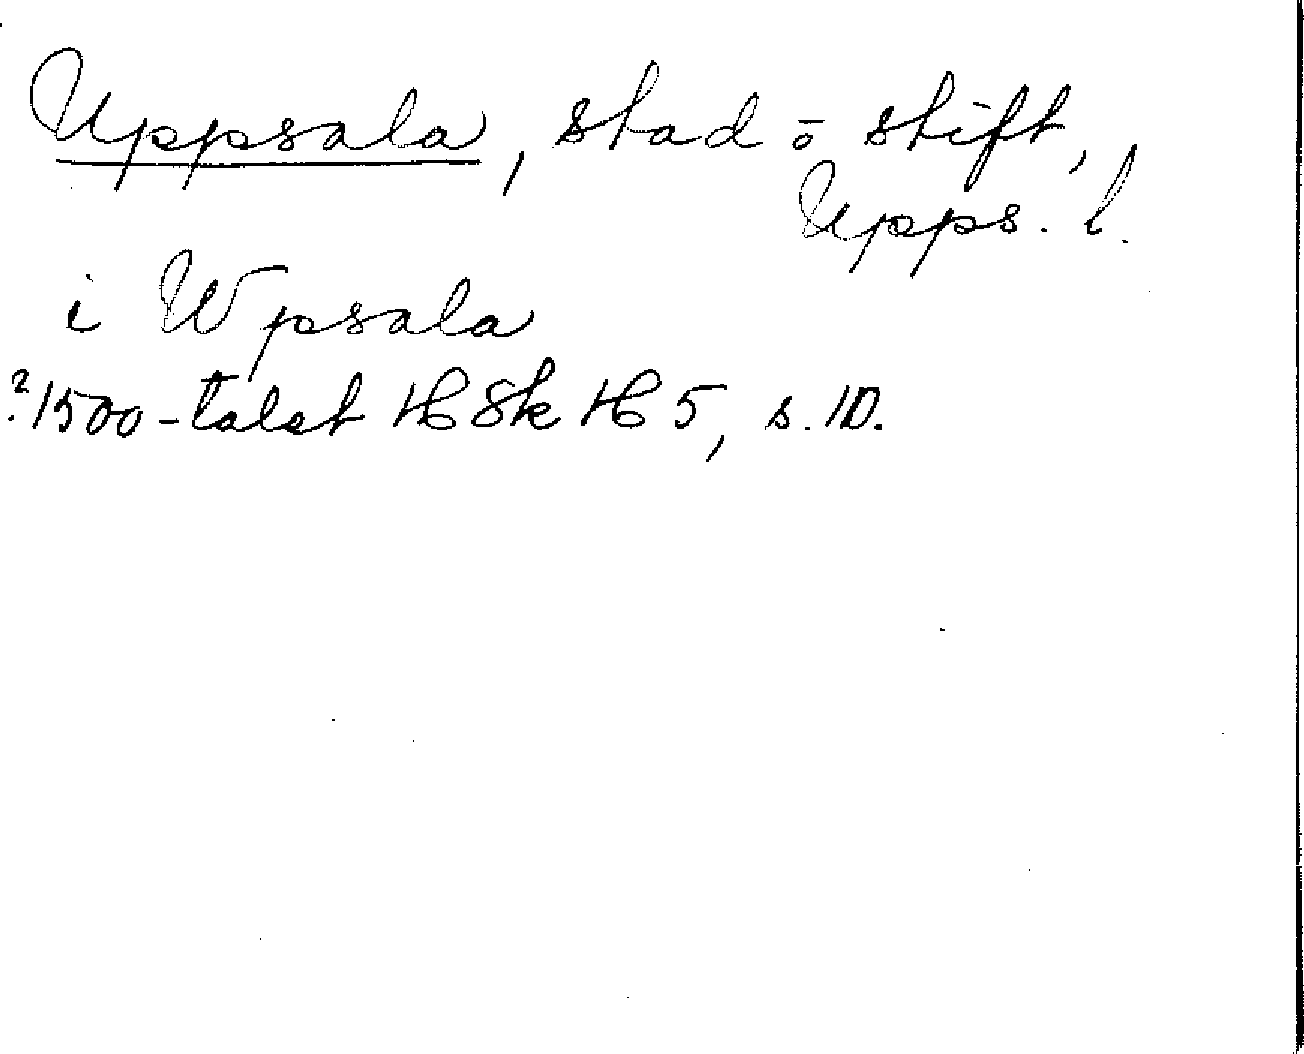 Uppsala, stad o stift,
Upps. l.
i Wpsala
?1500-talet HSk H 5, s. 10.